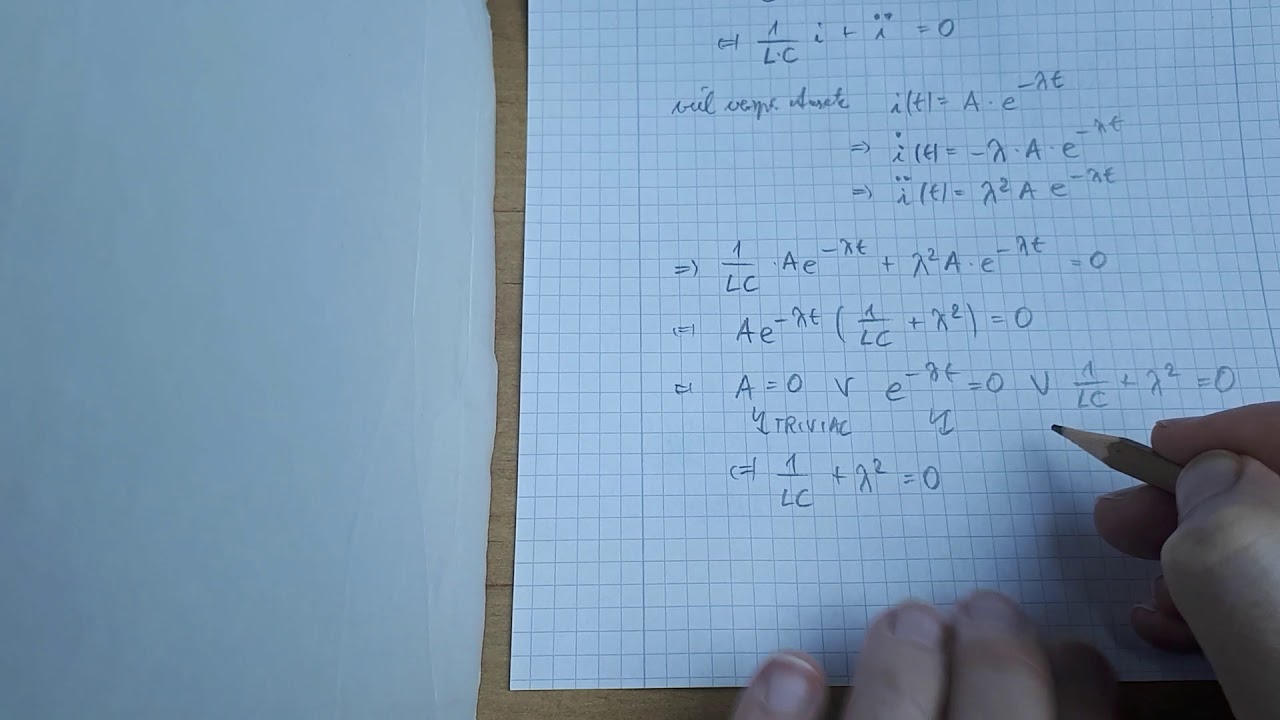 ⇔ 1/(L·C) i + ï = 0
i(t) = A · e^(-λt)
⇒ i̇(t) = -λ · A · e^(-λt)
⇒ ï(t) = λ² A e^(-λt)
⇒ 1/(LC) · Ae^(-λt) + λ²A · e^(-λt) = 0
⇔ Ae^(-λt) (1/(LC) + λ²) = 0
⇔ A = 0 ∨ e^(-λt) = 0 ∨ 1/(LC) + λ² = 0
↯ TRIVIAL ↯
⇔ 1/(LC) + λ² = 0